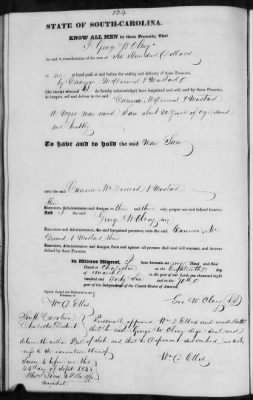 134
STATE OF SOUTH-CAROLINA.
KNOW ALL MEN by these Presents, That
I George W Olney
for and in consideration of the sum of Six Hundred Dollars
to me in hand paid at and before the sealing and delivery of these Presents,
by Cameron McDermid & Mustard
(the receipt whereof I do hereby acknowledge) have bargained and sold, and by these Presents,
do bargain, sell and deliver to the said Cameron McDermid & Mustard
A Negro man named Sam about 20 years of age sound
and healthy
To have and to hold the said Man Sam
unto the said Cameron McDermid & Mustard
their
Executors, Administrators and Assigns, to their only proper use and behoof forever.
And the said George W Olney my
Executors and Administrators, the said bargained premises, unto the said Cameron Mc
Dermid & Mustard their
Executors, Administrators and Assigns, from and against all persons shall and will warrant, and forever
defend by these Presents.
In Witness Whereof, I have hereunto set my Hand and Seal
Dated at Charleston on the
day of in the year of our Lord, one thousand eight
hundred and and in the
year of the Independence of the United States of America.
Signed, Sealed and Delivered in
the Presence of
Wm C Ellis Geo. W. Olney
South Carolina
Charleston District Personally appeared Wm C Ellis and made oath
that he saw George W Olney sign seal and
deliver the within Bill of Sale and that he
to the execution thereof
Sworn to before me this
of Sept Wm C Ellis